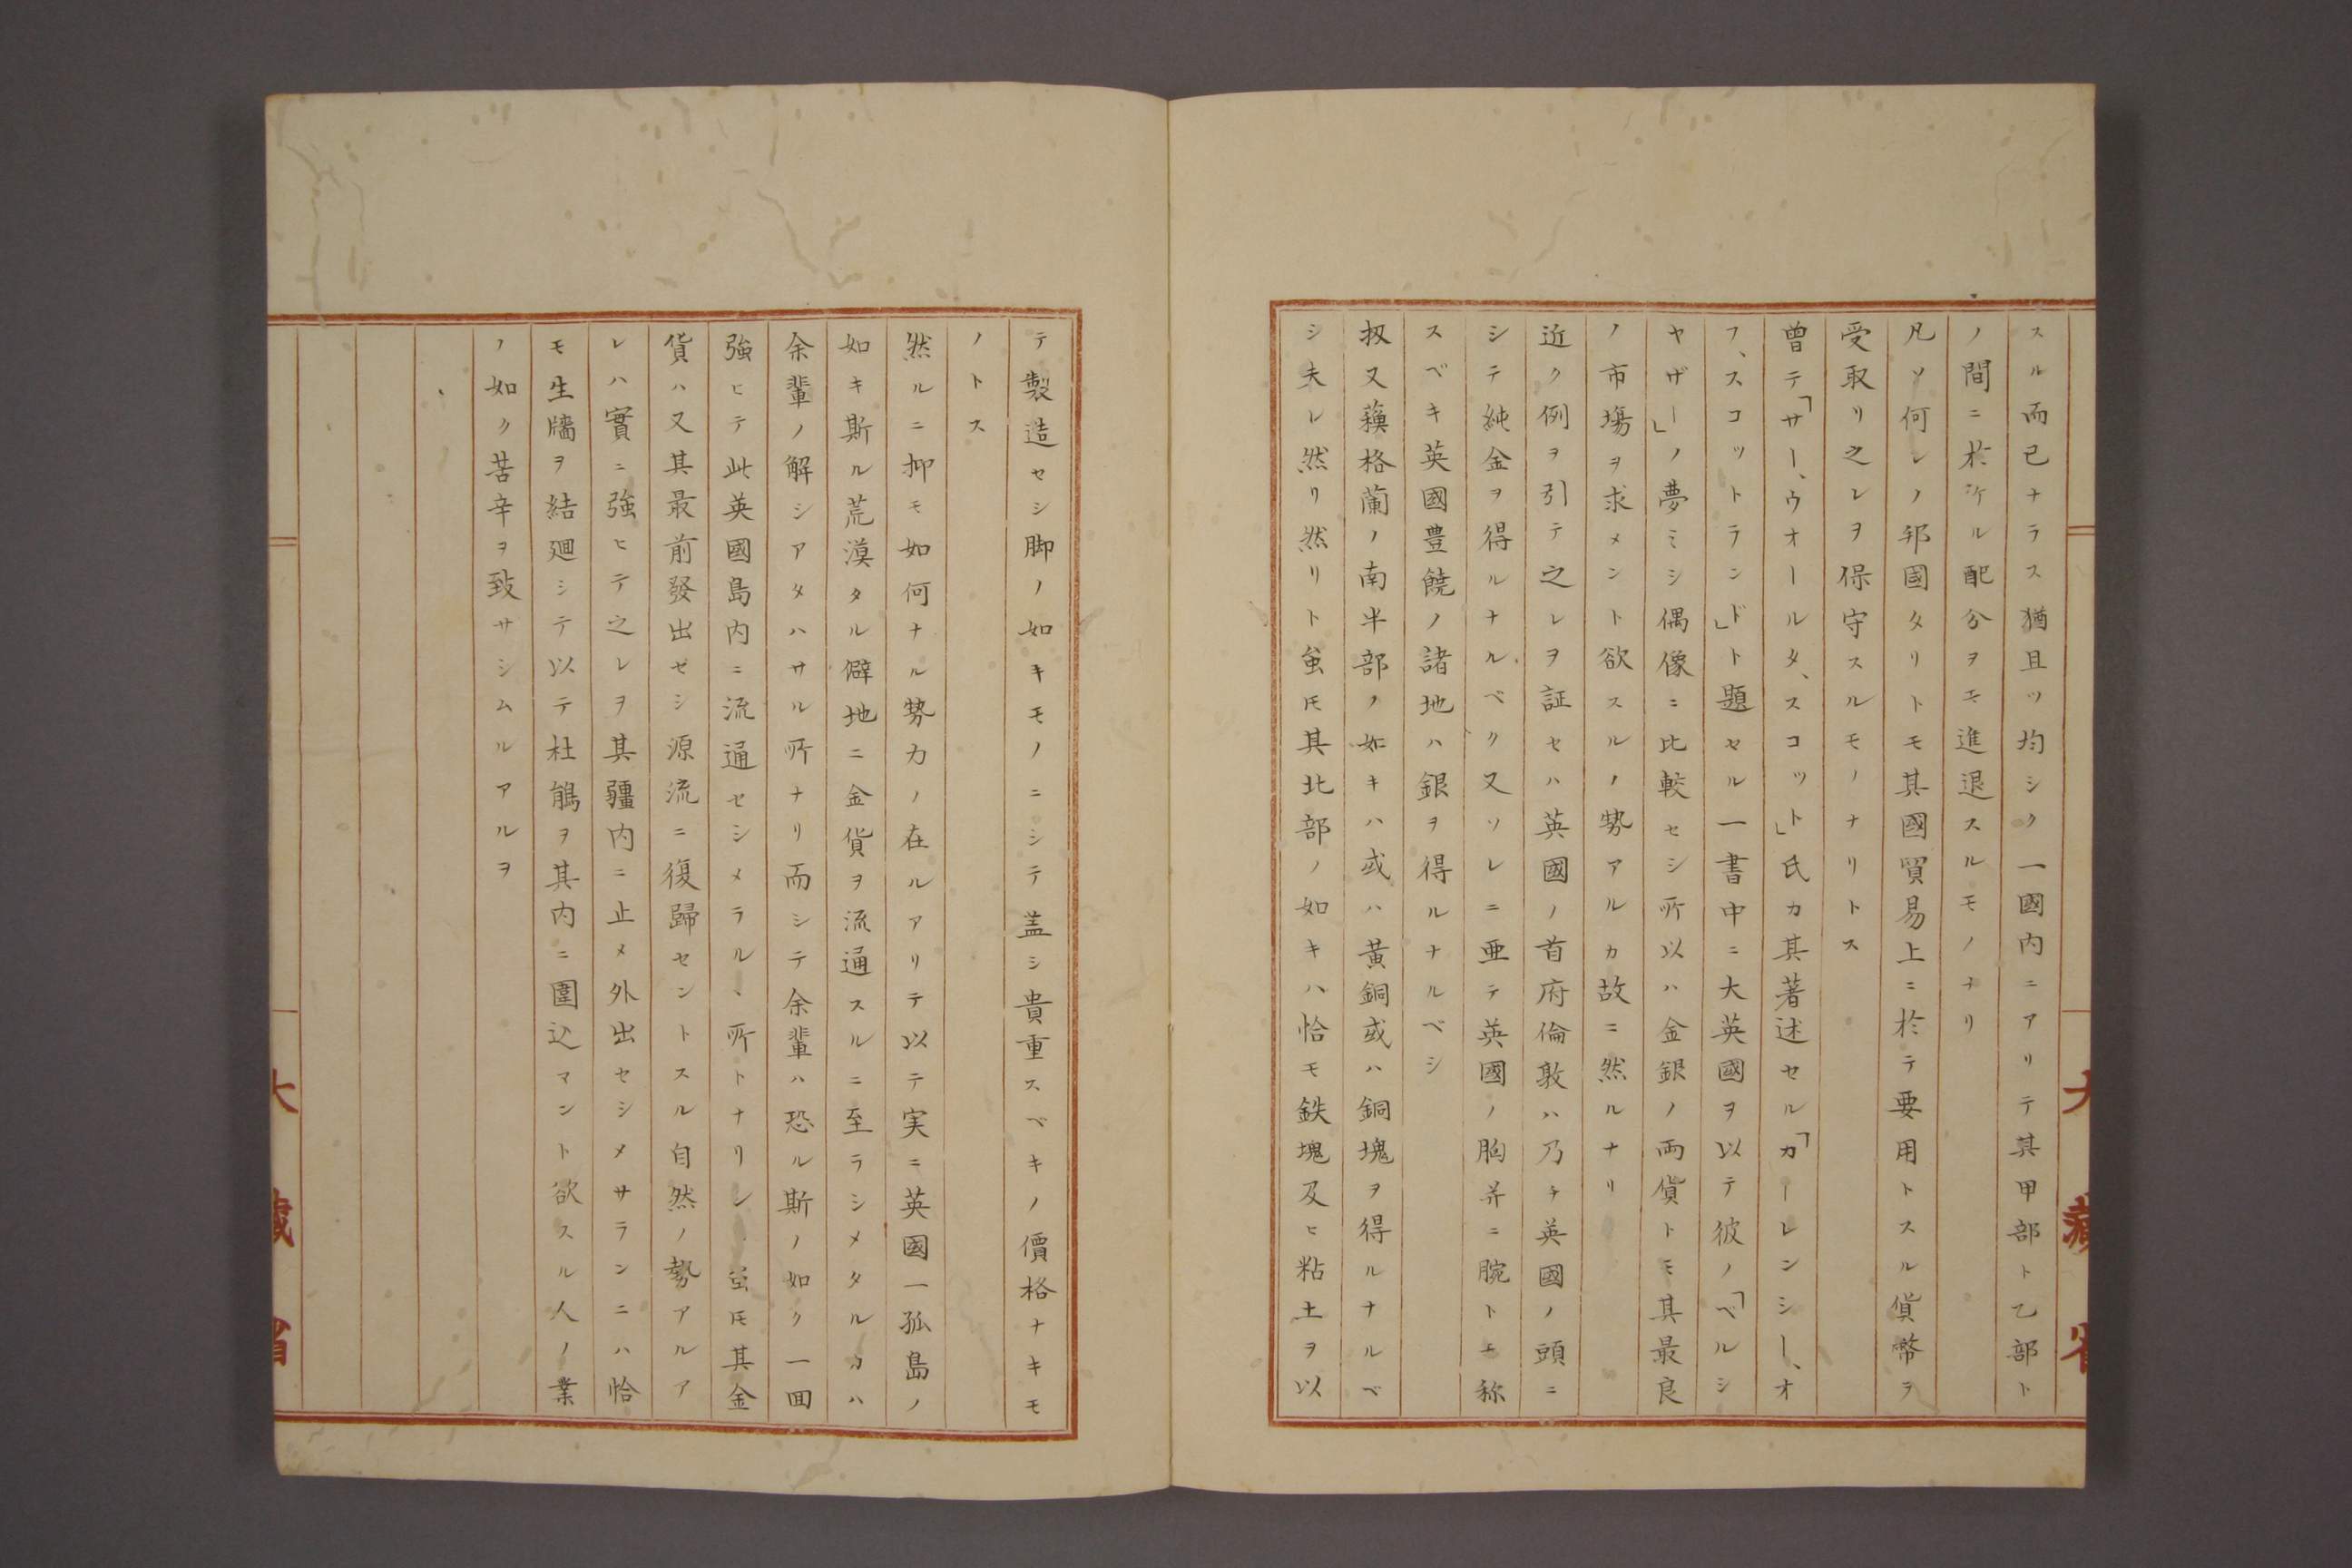 スル而已ナラス猶且ツ均シク一國内ニアリテ其甲部ト乙部ト
ノ間ニ於ケル配分ヲモ進退スルモノナリ
凡ソ何レノ邦國タリトモ其國貿易上ニ於テ要用トスル貨幣ヲ
受取リ之レヲ保守スルモノナリトス
曾テ「サー、ウオールタ、スコット」氏カ其著述セル「カーレンシー、オ
フ、スコットランド」ト題セル一書中ニ大英國ヲ以テ彼ノ「ベルシ
ヤザー」ノ夢ミシ偶像ニ比較セシ所以ハ金銀ノ両貨トモ其最良
ノ市場ヲ求メント欲スルノ勢アルカ故ニ然ルナリ
近ク例ヲ引テ之レヲ証セハ英國ノ首府倫敦ハ乃チ英國ノ頭ニ
シテ純金ヲ得ルナルベク又ソレニ亜テ英國ノ胸并ニ腕トモ称
スベキ英國豊饒ノ諸地ハ銀ヲ得ルナルベシ
扨又蘓格蘭ノ南半部ノ如キハ或ハ黄銅或ハ銅塊ヲ得ルナルベ
シ夫レ然リ然リト虽モ其北部ノ如キハ恰モ鉄塊及ヒ粘土ヲ以
テ製造セシ脚ノ如キモノニシテ盖シ貴重スベキノ價格ナキモ
ノトス
然ルニ抑モ如何ナル勢力ノ在ルアリテ以テ実ニ英國一孤島ノ
如キ斯ル荒漠タル僻地ニ金貨ヲ流通スルニ至ラシメタルカハ
余輩ノ解シアタハサル所ナリ而シテ余輩ハ恐ル斯ノ如ク一回
強ヒテ此英國島内ニ流通セシメラルヽ所トナリシ虽モ其金
貨ハ又其最前發出セシ源流ニ復歸セントスル自然ノ勢アルア
レハ實ニ強ヒテ之レヲ其疆内ニ止メ外出セシメサランニハ恰
モ生牆ヲ結廻シテ以テ杜鵑ヲ其内ニ圍込マント欲スル人ノ業
ノ如ク苦辛ヲ致サシムルアルヲ
大藏省